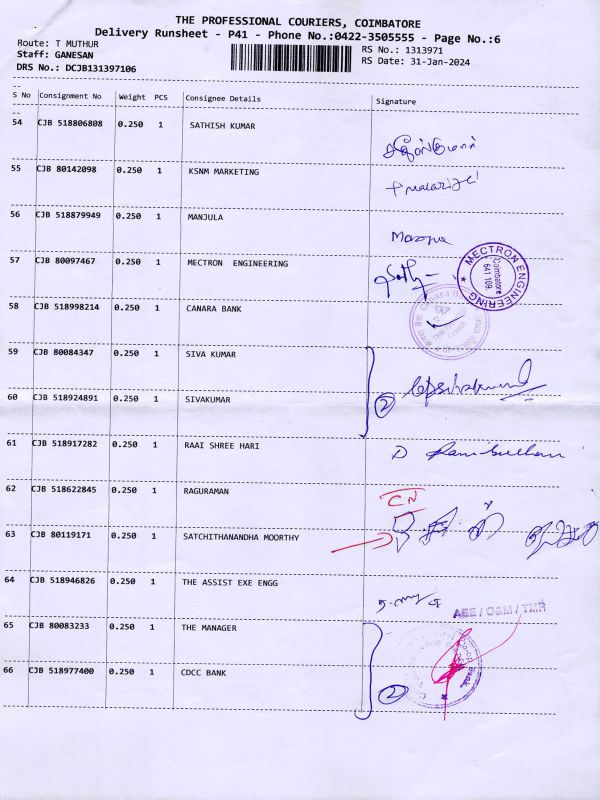 THE PROFESSIONAL COURIERS, COIMBATORE
Delivery Runsheet - P41 - Phone No.:0422-3505555 - Page No.:6
Route: T MUTHUR
RS No.: 1313971
Staff: GANESAN
RS Date: 31-Jan-2024
DRS No.: DCJB131397106
S No Consignment No Weight PCS Consignee Details Signature
54 CJB 518806808 0.250 1 SATHISH KUMAR
55 CJB 80142098 0.250 1 KSNM MARKETING
56 CJB 518879949 0.250 1 MANJULA
57 CJB 80097467 0.250 1 MECTRON ENGINEERING
MECTRON ENGINEERING
Coimbatore
641 109
58 CJB 518998214 0.250 1 CANARA BANK
Canara
59 CJB 80084347 0.250 1 SIVA KUMAR
60 CJB 518924891 0.250 1 SIVAKUMAR
2
61 CJB 518917282 0.250 1 RAAI SHREE HARI
62 CJB 518622845 0.250 1 RAGURAMAN
CN
63 CJB 80119171 0.250 1 SATCHITHANANDHA MOORTHY
64 CJB 518946826 0.250 1 THE ASSIST EXE ENGG
AEE / O&M / TMR
65 CJB 80083233 0.250 1 THE MANAGER
66 CJB 518977400 0.250 1 CDCC BANK
2